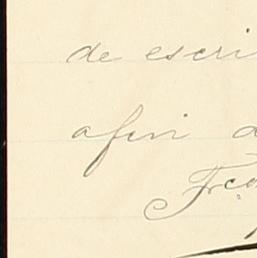 de escri
afin d
Frco